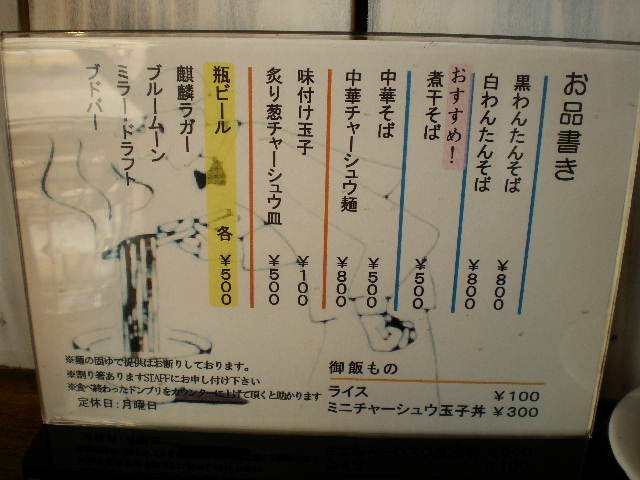 お品書き
黒わんたんそば ¥800
白わんたんそば ¥800
おすすめ!
煮干そば ¥500
中華そば ¥500
中華チャーシュウ麺 ¥800
味付け玉子 ¥100
炙り葱チャーシュウ皿 ¥500
瓶ビール 各 ¥500
麒麟ラガー
ブルームーン
ミラードラフト
ブドバー
御飯もの
ライス ¥100
ミニチャーシュウ玉子丼 ¥300
※麺の固ゆで提供はお断りしております。
※割り箸ありますSTAFFにお申し付け下さい
※食べ終わったドンブリをカウンターに上げて頂くと助かります
定休日:月曜日